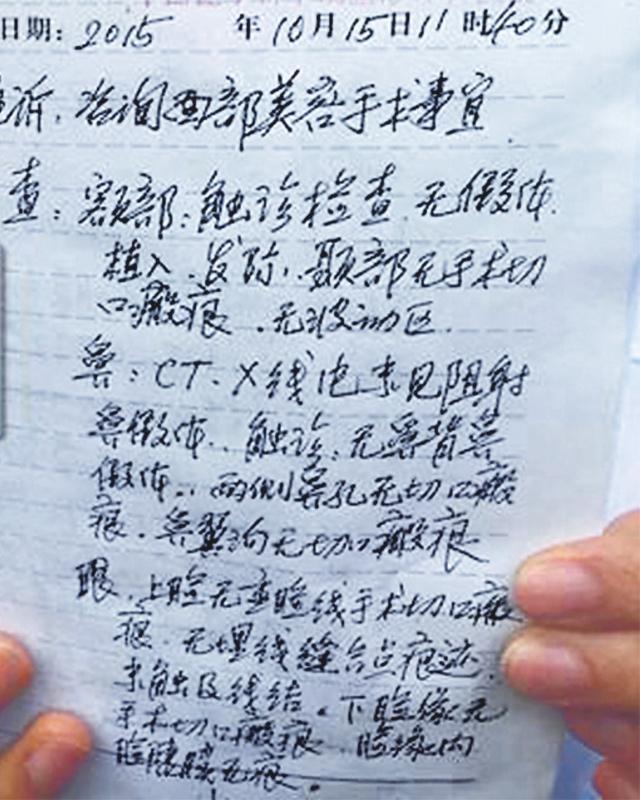 日期: 2015 年10月15日11时40分
诉. 咨询面部美容手术事宜.
查: 额部: 触诊检查. 无假体.
植入. 发际. 颞部无手术切
口瘢痕. 无波动区.
鼻: CT. X线 未见阻射
鼻假体. 触诊. 无鼻背鼻
假体. 两侧鼻孔无切口瘢
痕. 鼻翼沟无切口瘢痕
眼. 上睑无重睑线手术切口瘢
痕. 无埋线缝合点痕迹.
未触及线结. 下睑缘无
手术切口瘢痕 睑缘内
睑膜无痕.